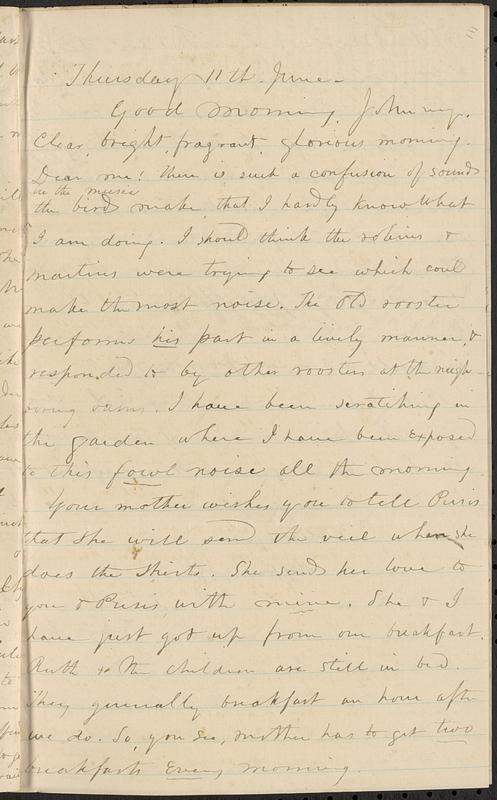 Thursday 11th June -
Good Morning, Johnny.
Clear, bright, fragrant, glorious morning.
Dear me! there is such a confusion of sounds
in the music
the birds make, that I hardly know what
I am doing. I shoul think the robins &
martins were trying to see which coul
make the most noise. The old rooster
performs his part in a lively manner, &
responded to by other roosters at the neigh-
boring barns. I have been scratching in
the garden where I have been exposed
to this fowl noise all the morning.
Your mother wishes you to tell
that she will send the veil when she
does the shirts. She sends her love to
you & with mine. She & I
have just got up from our breakfast.
Ruth & the children are still in bed.
They generally breakfast an hour after
we do. So, you see, mother has to get two
breakfasts every morning.